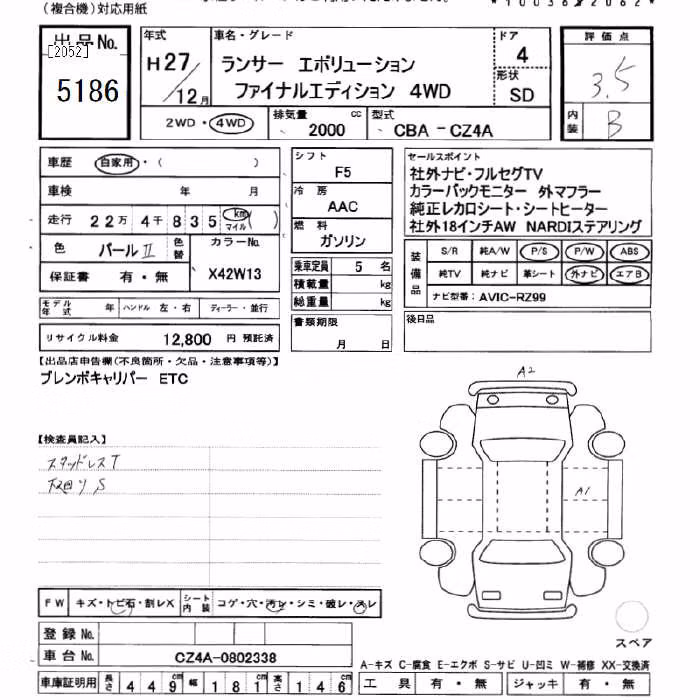 (複合機)対応用紙
出品No.
[2052]
5186
年式
H27/12月
車名・グレード
ランサー エボリューション
ファイナルエディション 4WD
ドア
4
形状
SD
評価点
3.5
内装
B
2WD・4WD
排気量
2000 cc
型式
CBA-CZ4A
車歴 自家用・( )
車検 年 月
走行 22万 4千 835 km マイル ( )
色 パールⅡ 色替 カラーNo. X42W13
保証書 有・無
モデル年式 年 ハンドル 左・右 ディーラー・並行
リサイクル料金 12,800 円 預託済
シフト
F5
冷房
AAC
燃料
ガソリン
乗車定員 5 名
積載量 kg
総重量 kg
書類期限
月 日
セールスポイント
社外ナビ・フルセグTV
カラーバックモニター 外マフラー
純正レカロシート・シートヒーター
社外18インチAW NARDIステアリング
装備品
S/R 純A/W P/S P/W ABS
純TV 純ナビ 革シート 外ナビ エアB
ナビ型番: AVIC-RZ99
後日品
【出品店申告欄(不良箇所・欠品・注意事項等)】
ブレンボキャリパー ETC
【検査員記入】
スタッドレスT
下回りS
A2
A1
スペア
FW キズ・トビ石・割レX シート内装 コゲ・穴・汚レ・シミ・破レ・スレ
登録No.
車台No. CZ4A-0802338
車庫証明用 長さ 449cm 幅 181cm 高さ 146cm
A-キズ C-腐食 E-エクボ S-サビ U-凹ミ W-補修 XX-交換済
工具 有・無 ジャッキ 有・無